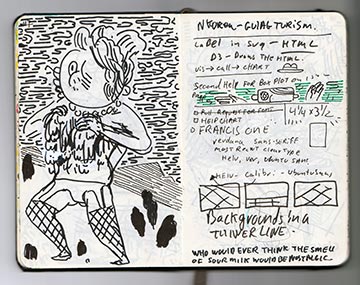 NEURON-GUIAL TURISM.
Label in svg - HTML
D3 - Draws the HTML.
vis → call → CHART
Second Help For Box Plot on
D HOIP CHART
4 1/4 x 3 1/2
O FRANCIS ONE
verdana sans-seriff
most recent clear type
Helv, ver, Ubuntu sans
Helv - Calibri - Ubuntu Sans,
Backgrounds in a
THINNER LINE.
WHO WOULD EVER THINK THE SMELL
OF SOUR MILK WOULD BE NOSTALGIC